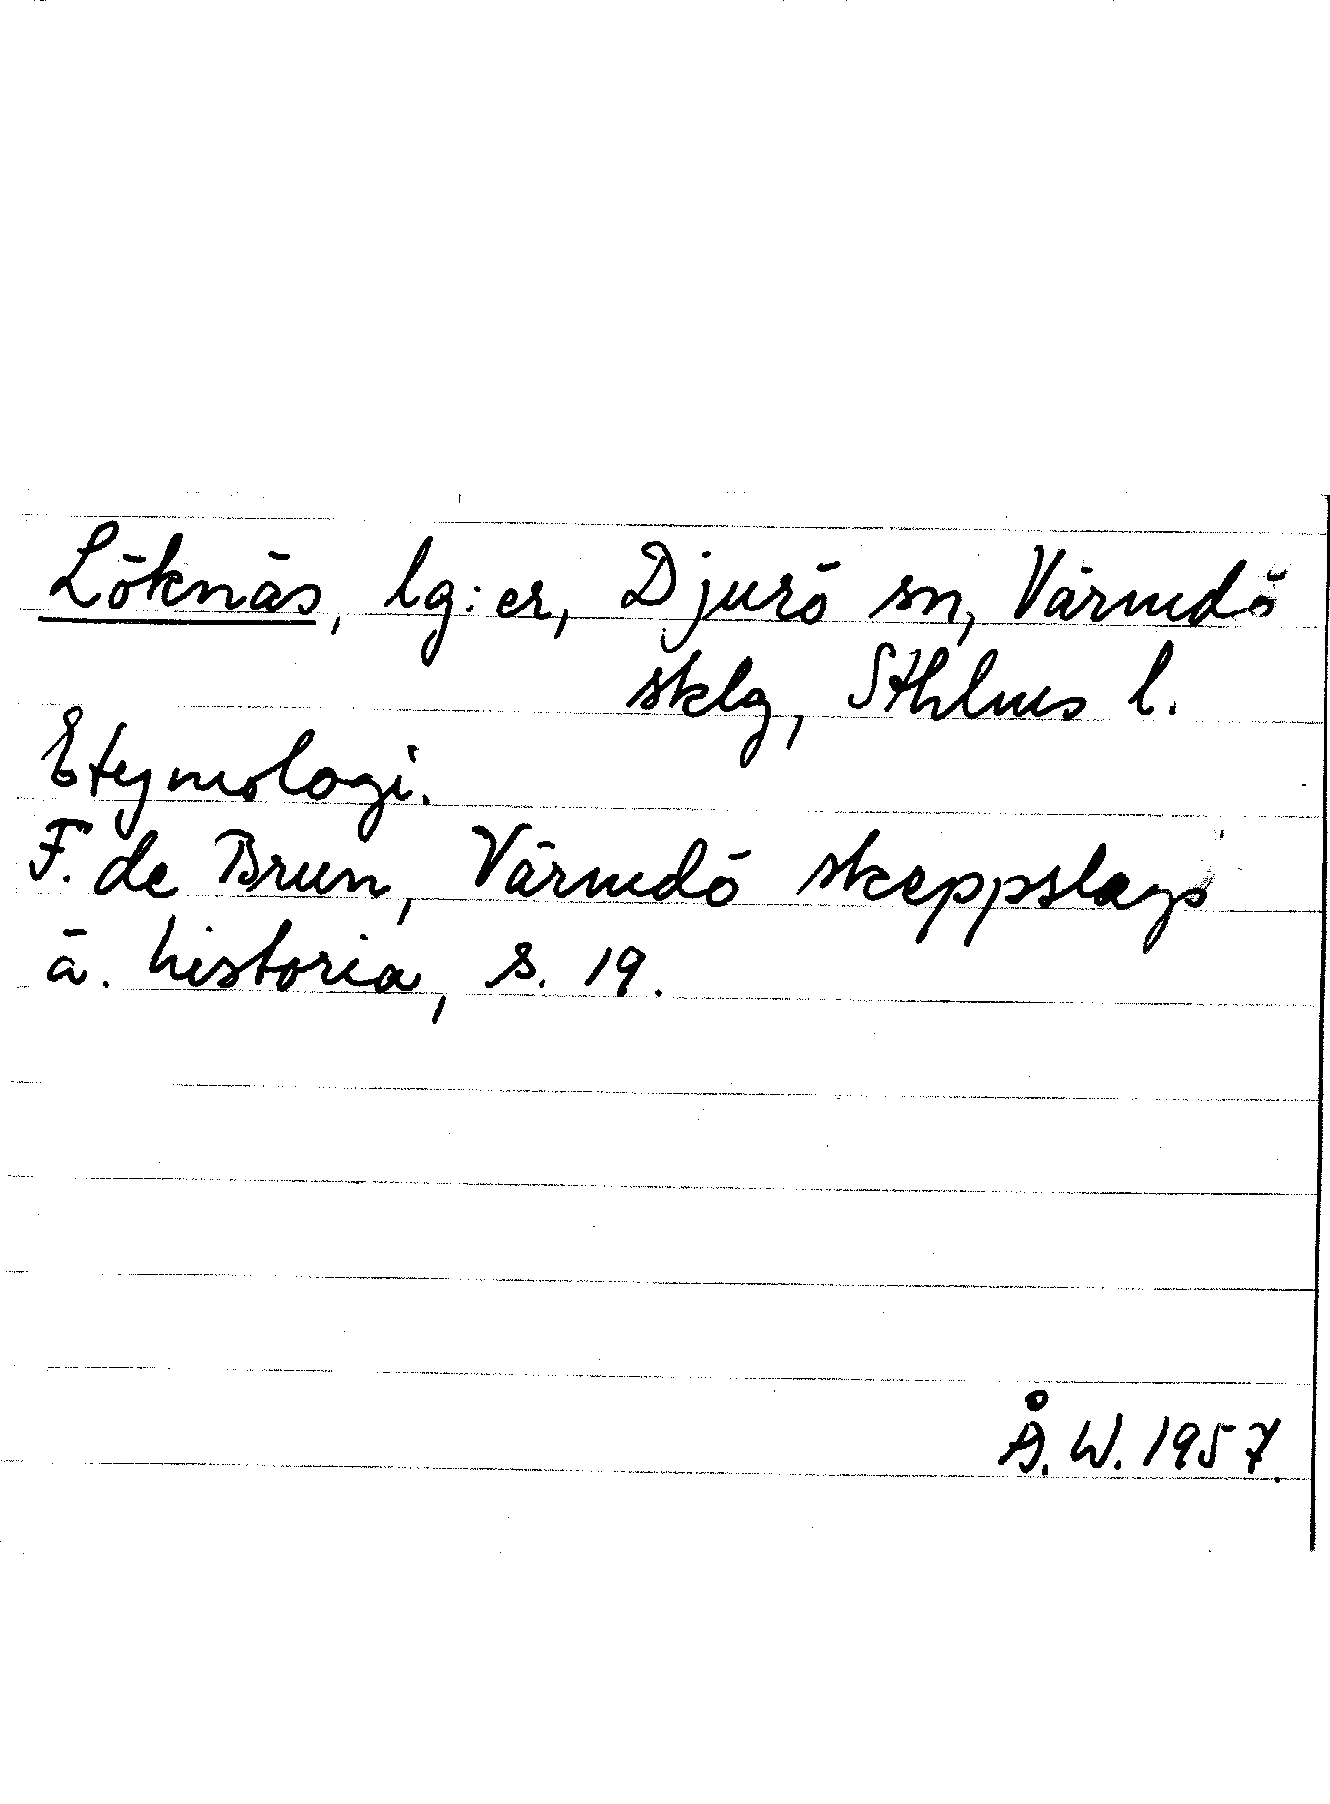 Löknäs, lg:er, Djurö sn, Värmdö
sklg, Sthlms l.
Etymologi.
F. de Brun, Värmdö skeppslags
ä. historia, s. 19.
Å. W. 1957.